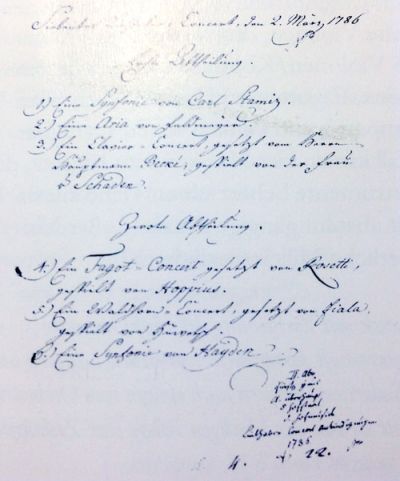 Siebenter Concert, den 2. März, 1786
Erste Abtheilung.
1.) Eine Synfonie von Carl Stamiz.
2.) Eine Aria von
3.) Ein Clavier-Concert, gesetzt von Herrn
Hauptmann Beecké, gespielt von der Frau
v Schaden.
Zwote Abtheilung.
4.) Ein Fagot-Concert gesetzt von Rosetti,
gespielt von Hoppius.
5.) Ein Waldhorn-Concert, gesetzt von Fiala,
gespielt von
6.) Eine Synfonie von Hayden
Hofmusik
Concert Ankündigungen
1786
4. 22.